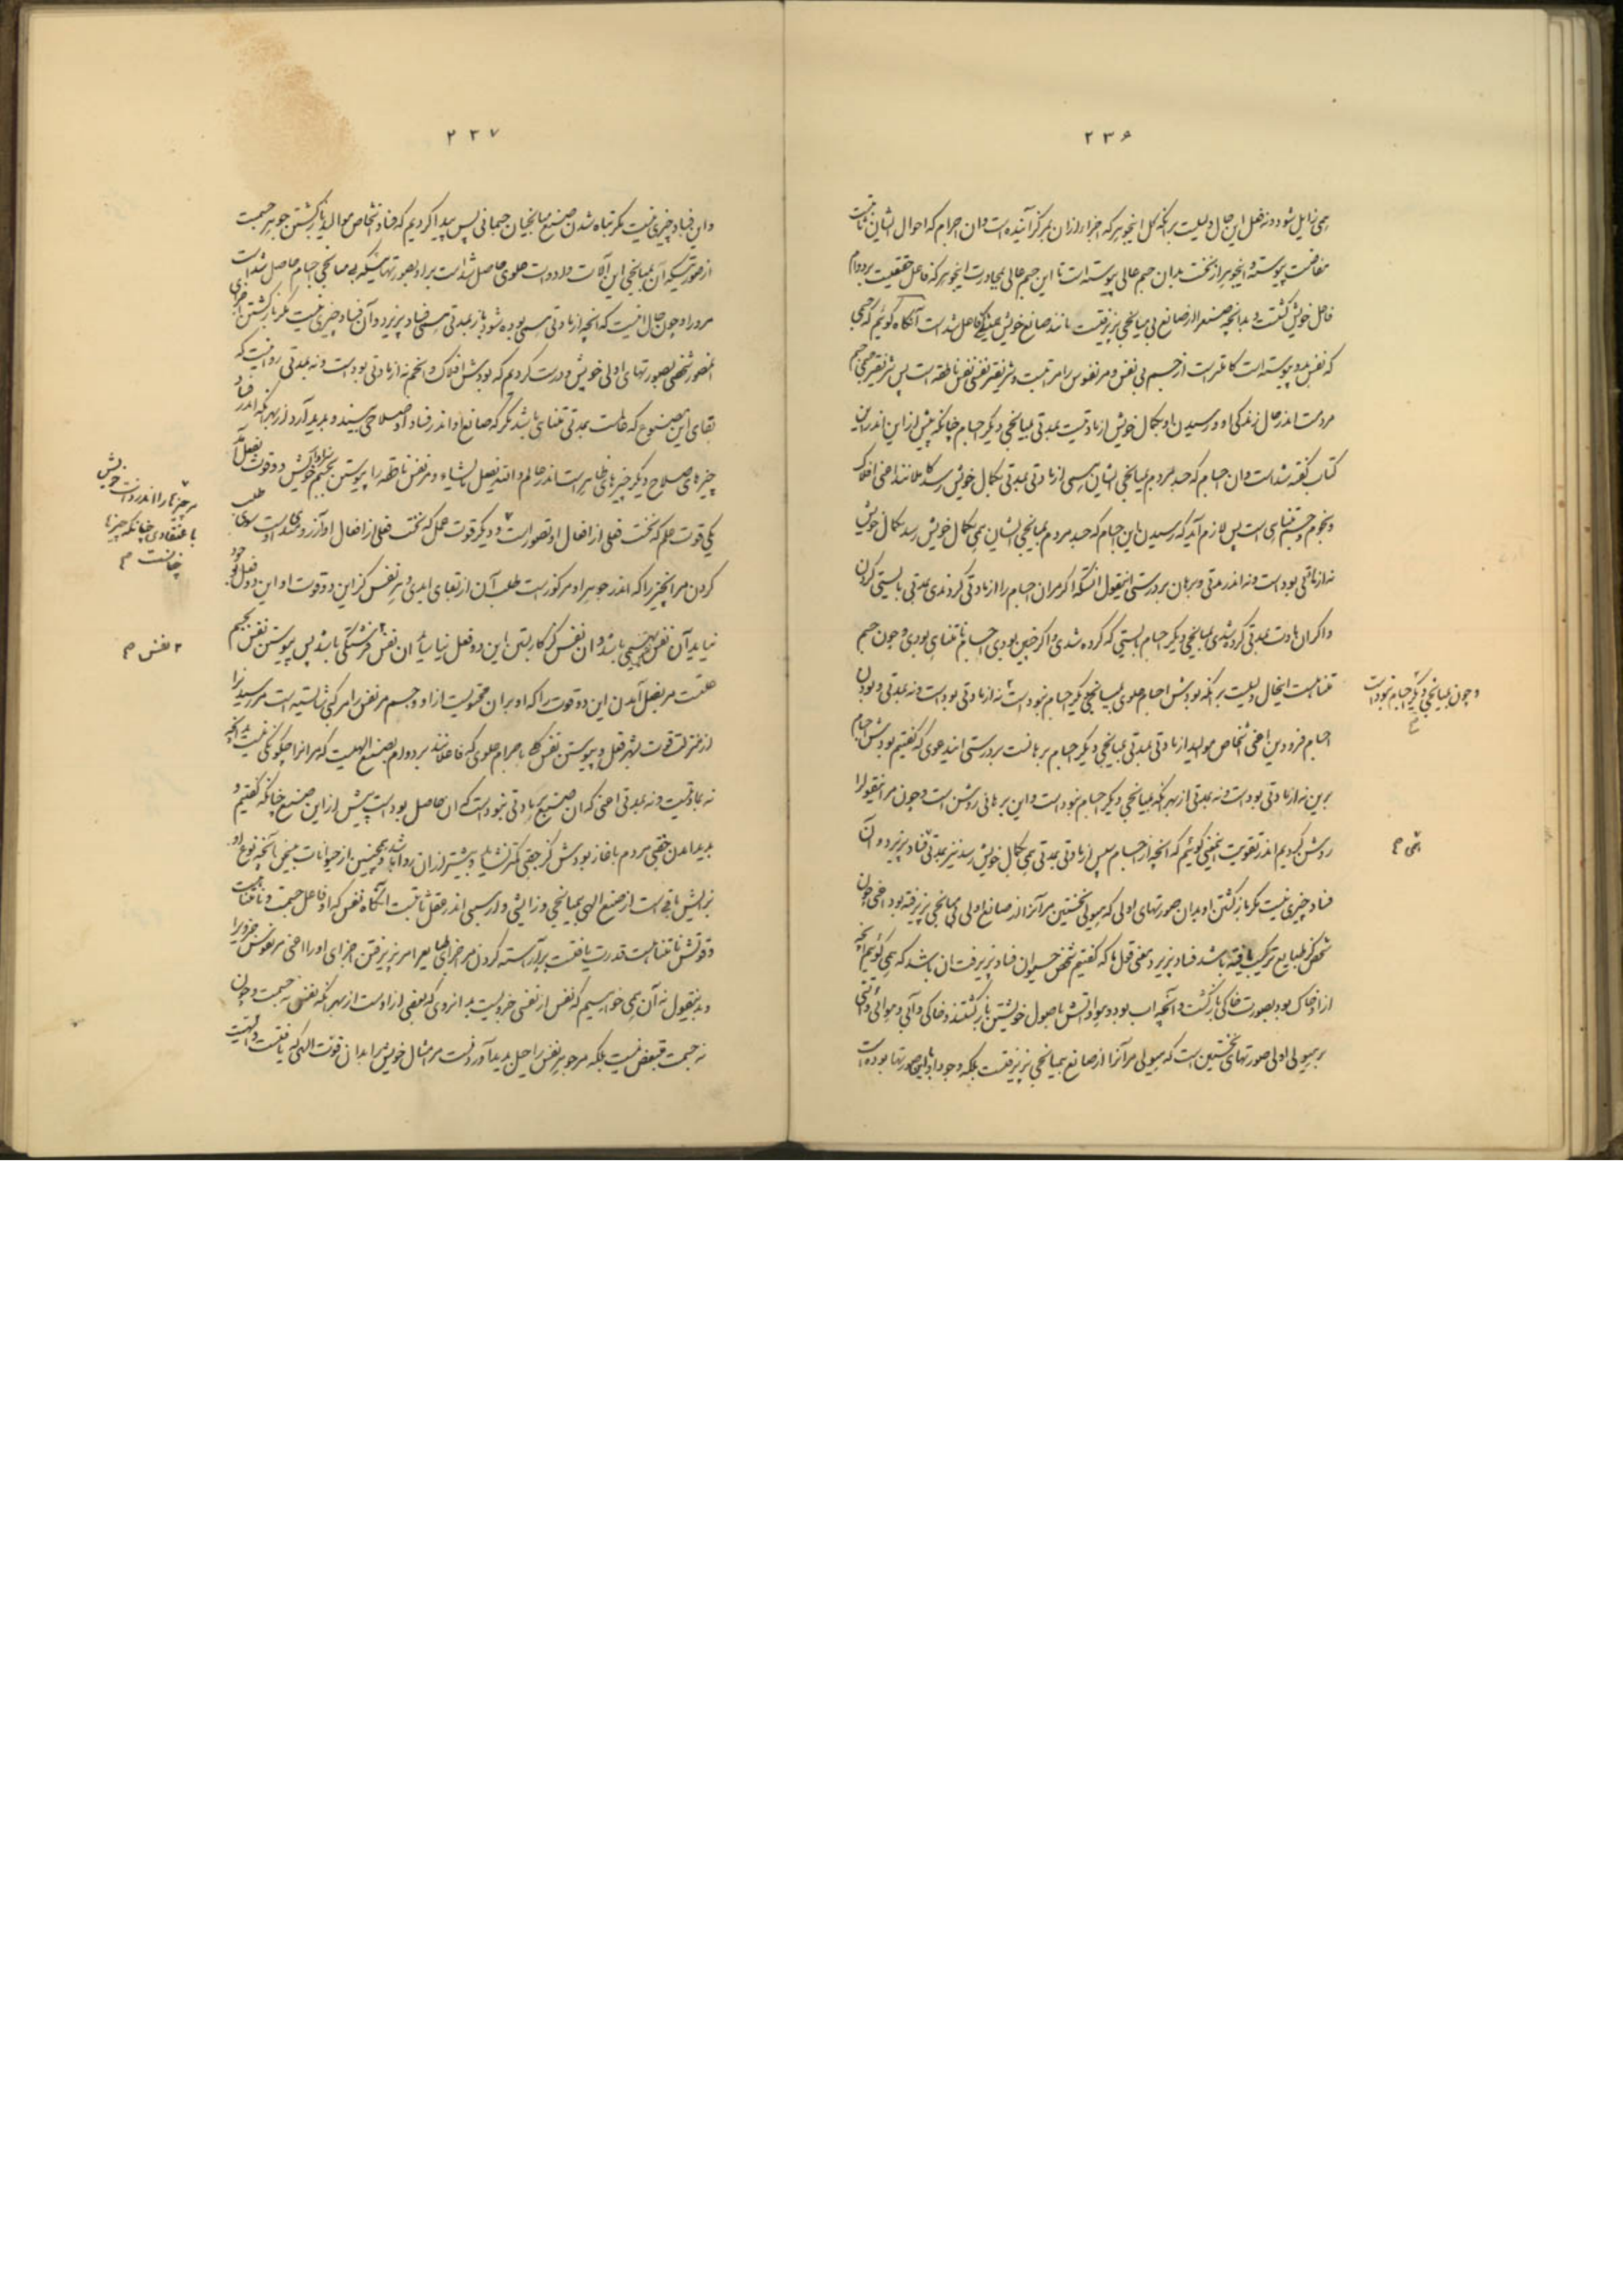 ۲۳۶
همی زایل شود و نه فعل این حال دلیلست بر آنکه کل این جوهر که اجزا از آن بمرکز آینده است و آن اجرام که احوال ایشان ثابتست
مفاضت پیوسته و این جوهر از نخست بدان جسم عالی پیوسته است تا این جسم عالی بمجاورت این جوهر که فاعل حقیقست بر دوام
فاعل خویش گشتست و بدانچه صنع را از صانع بی میانجی پذیرفتست مانند صانع خویش فاعل شده است آنگاه گوئیم که جسمی
که نفس بدو پیوسته است کاملتر است از جسم بی نفس و مر نفوس را مراتبست و شریفتر نفسی نفس ناطقه است پس شریفتر جسمی جسم
مردمست اندر حال زندگی او و رسیدن او بکمال خویش از مادتیست بمدتی بمیانجی دیگر اجسام چنانکه پیش از این اندر این
کتاب گفته شده است و آن اجسام که جسد مردم بمیانجی ایشان همی از مادتی بمدتی بکمال خویش رسد کاملانند اعنی افلاک
و نجوم و جسم متناهی است پس لازم آید که رسیدن این اجسام که جسد مردم بمیانجی ایشان همی بکمال خویش رسد بکمال خویش
نه از مادتی بوده است و نه اندر مدتی و برهان بر درستی این قول آنست که اگر مر آن اجسام را از مادتی کردندی بمدتی بایستی کردن
و اگر آن مادت بمدتی کرده شدی بمیانجی دیگر اجسام بایستی که کرده شدی و اگر چنین بودی اجسام نامتناهی بودی و چون جسم
متناهیست این حال دلیلست بر آنکه بودش اجسام علوی بمیانجی دیگر اجسام نبوده است نه از مادتی بوده است و نه بمدتی و بودن
اجسام فرودین اعنی اشخاص موالید از مادتی بمدتی بمیانجی دیگر اجسام برهانست بر درستی این دعوی که گفتیم بودش اجسام
برین نه از مادتی بوده است و نه بمدتی از بهر آنکه بمیانجی دیگر اجسام نبوده است و این برهانی روشن است و چون مر این قول را
روشن کردیم اندر تقویت این معنی گوئیم که آنچه از اجسام پس از مادتی بمدتی همی بکمال خویش رسد نیز بمدتی فساد پذیرد و آن
فساد چیزی نیست مگر بازگشتن او بدان صورتهای اولی که هیولی نخستین مر آنرا از صانع اولی بی میانجی پذیرفته بود اعنی چون
شخص کز طبایع ترکیب یافته باشد فساد پذیرد معنی قول ما که گفتیم شخص حیوان فساد پذیرفت آن باشد که همی گوئیم آنچه
از او خاک بود بصورت خاکی بازگشت و آنچه آب بود و هوا و آتش باصول خویشتن بازگشتند و خاکی و آبی و هوائی و آتشی
بر هیولی اولی صورتهای نخستین است که هیولی مر آنرا از صانع بمیانجی نپذیرفتست بلکه وجود او با این صورتها بوده است
و چون بمیانجی دیگر اجسام نبوده است
همی م
۲۳۷
و این فساد چیزی نیست مگر تباه شدن صنع میانجیان جسمانی پس پیدا کردیم که فساد اشخاص موالید بازگشتن جوهر جسمست
از صورتی که آن بمیانجی این آلات و ادوات علوی حاصل شده است بر او بصورتهائی که بی میانجی اجسام حاصل شده است
مر او را و چون حال اینست که آنچه از مادتی همی بوده شود باز بمدتی همی فساد پذیرد و آن فساد چیزی نیست مگر بازگشتن اجزای
آن صور شخصی بصورتهای اولی خویش و درست کردیم که بودش افلاک و انجم نه از مادتی بوده است و نه بمدتی روا نیست که
بقای این مصنوع که عالمست بمدتی متناهی باشد مگر که صانع او اندر فساد او صلاحی بیند و پدید آرد از بهر آنکه اندر فساد
چیزهای صلاح دیگر چیزهای ظاهر است اندر عالم و الله یفعل ما یشاء و مر نفس ناطقه را پیوستن بجسم خویش دو قوت بفعل آید
یکی قوت علم که نخست فعلی از افعال او تصور است و دیگر قوت عمل که نخست فعلی از افعال او آرزومندی است سوی طلب
کردن مر آن چیز را که اندر جوهر او مرکوز است طلب آن از بقای ابدی و هر نفس کز این دو قوت او این دو فعل بوجود
نیاید آن نفس بهیمی باشد و آن نفس کز کار بستن این دو فعل نیاساید آن نفس فرشتگی باشد پس پیوستن نفس بجسم
علتست مر بفعل آمدن این دو قوت را که او بر آن محتویست از او و جسم مر نفس را مرکبی شایسته است مر رسیدن را
از منزلت قوت بشهر فعل و پیوستن نفس کلی باجرام علوی که فاعلانند بر دوام بصنع الهیست که مر آنرا چگونگی نیست بدانچه
نه بمادتیست و نه بمدتی اعنی که آن صنع بر مادتی نبوده است که آن حاصل بوده است پیش از این صنع چنانکه گفتیم و
پدید آمدن جفتی مردم بآغاز بودش کز جفتی کمتر نشاید و بیشتر از آن روا باشد و همچنین از حیوانات جفتی بآنچه نوع او
بزایش باقی است از صنع الهی بمیانجی و زایشی و از رسمی اندر عقل ثابتست آنگاه نفس که او فاعل جسمست و نامتناهیست
و قوتش نامتناهیست قدرت یافتست بر آراسته کردن مر اجزای طبایع را مر پذیرفتن اجزای او را اعنی مر نفوس جزوی را
و بدین قول نه آن همی خواهیم که نفس از نفس جزویست بدانروی که بعضی از اوست از بهر آنکه نفس نه جسمست و چون
نه جسمست متبعض نیست بلکه مر جوهر نفس را حیلت پدید آوردنست مر مثال خویش را بدان قوت الهی که یافتست
مر چیزها را اندر ذات خویش
با عتقادی چنانکه چیزها
چنانست م
۲ نفس م